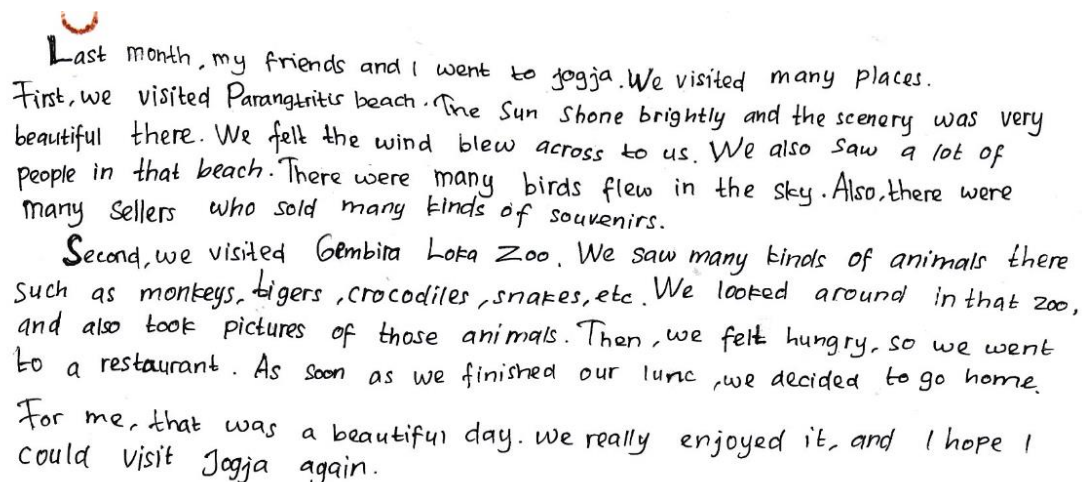 Last month, my friends and I went to Jogja. We visited many places.
First, we visited Parangtritis beach. The Sun Shone brightly and the scenery was very
beautiful there. We felt the wind blew across to us. We also Saw a lot of
people in that beach. There were many birds flew in the sky. Also, there were
many Sellers who sold many kinds of souvenirs.
Second, we visited Gembira Loka Zoo. We saw many kinds of animals there
Such as monkeys, tigers, crocodiles, snakes, etc. We looked around in that zoo,
and also took pictures of those animals. Then, we felt hungry, so we went
to a restaurant. As Soon as we finished our lunc, we decided to go home.
For me, that was a beautiful day. we really enjoyed it, and I hope I
could visit Jogja again.